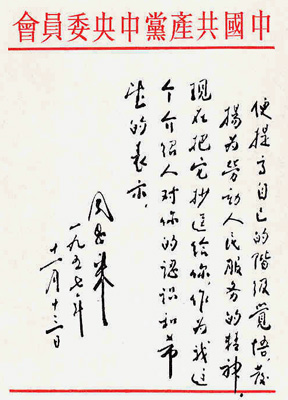 中國共產黨中央委員會
便提高自己的階級覺悟,發
揚为勞动人民服务的精神.
現在把它抄送給你,作为我這
个介紹人对你的認識和希
望的表示.
周恩来
一九五七年
十一月十三日